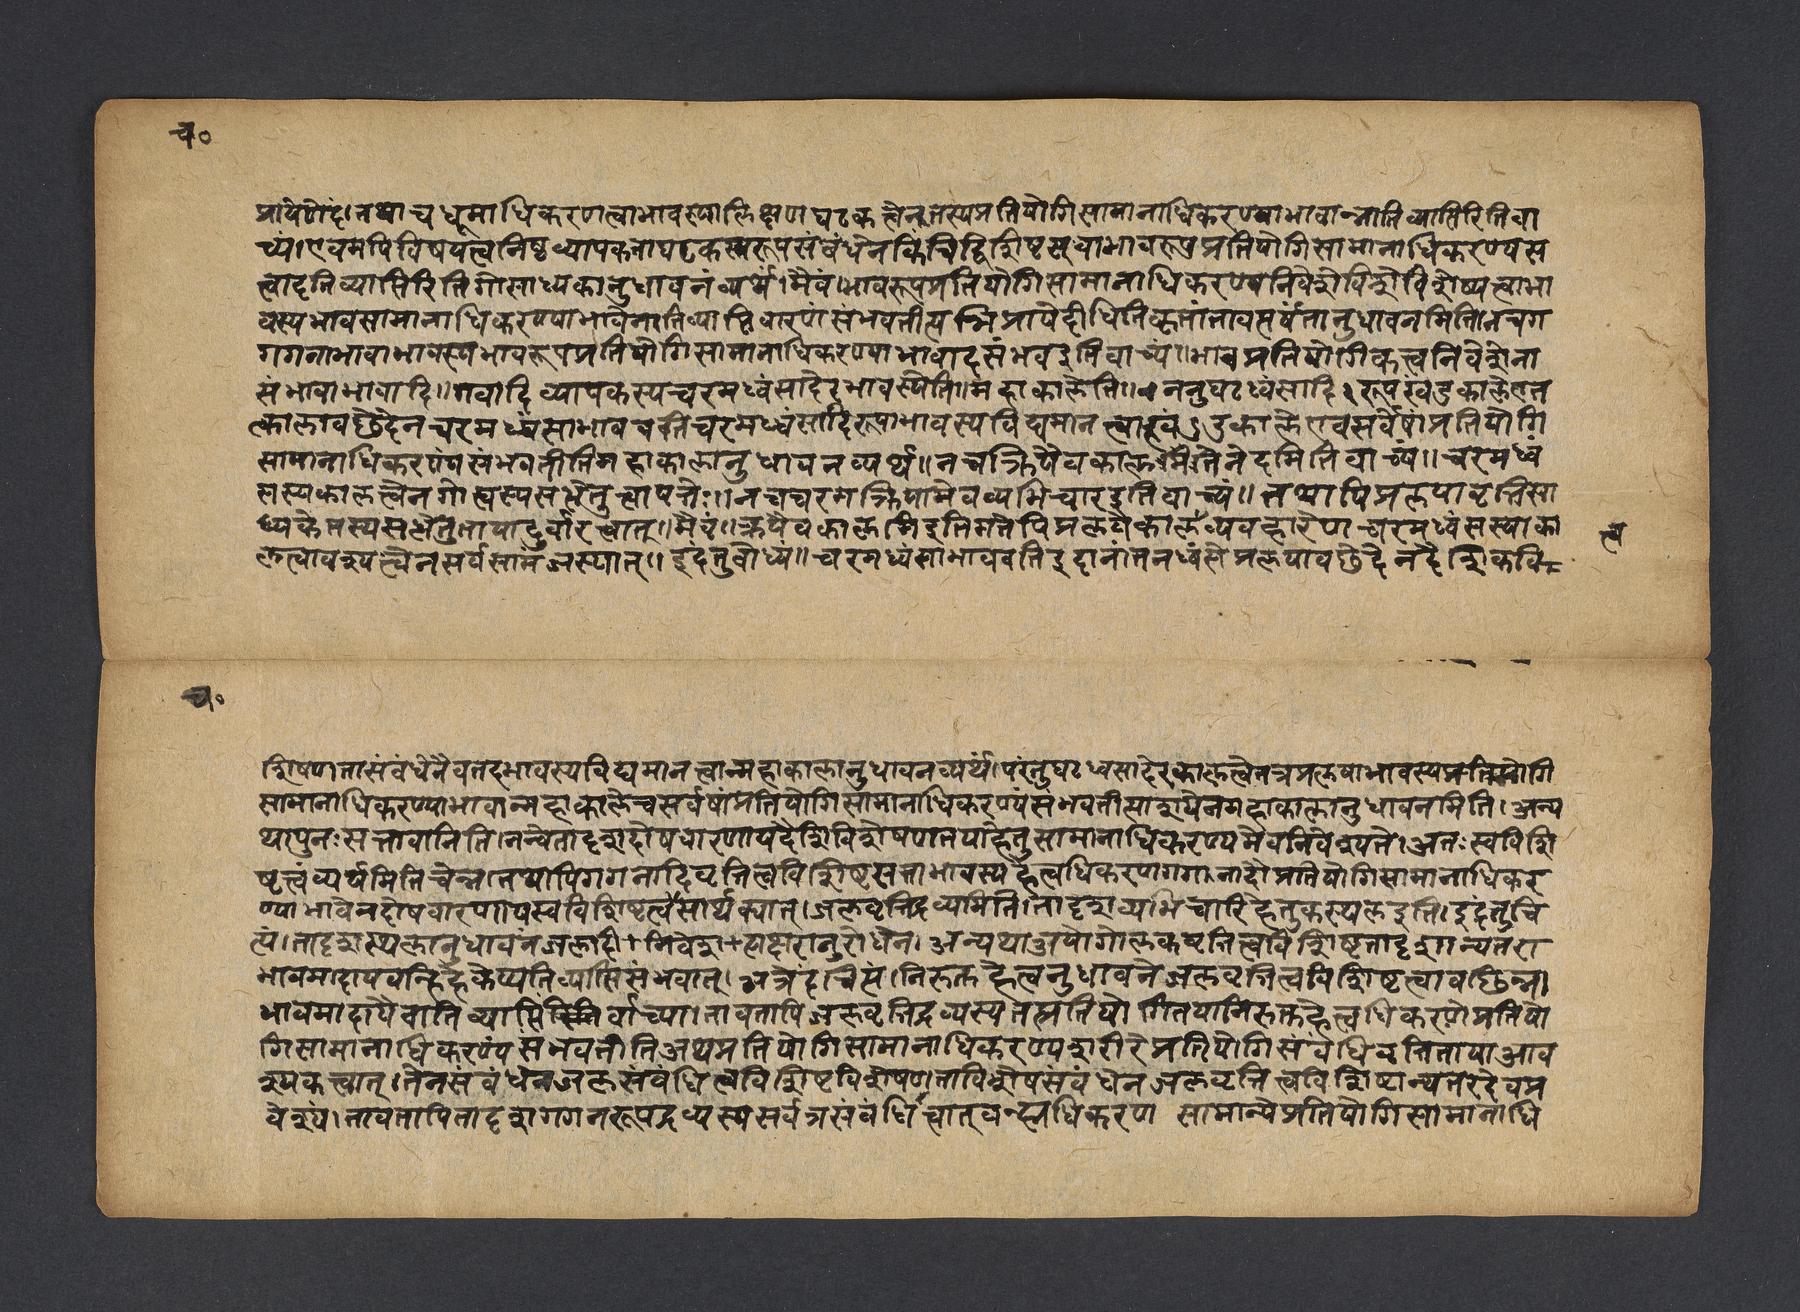 च॰
प्रायेणेदं। तथा च धूमाधिकरणत्वाभावस्य लक्षणघटकत्वेन तस्य प्रतियोगिसामानाधिकरण्याभावान्नातिव्याप्तिरिति वा
च्यं। एवमपि विषयत्वनिष्ठव्यापकताघटकस्वरूपसंबंधेन किंचिद्विशिष्ट भावरूपप्रतियोगिसामानाधिकरण्यस
त्वादतिव्याप्तिरिति गोसाध्यकानुधावनं व्यर्थं। मैवं। भावरूपप्रतियोगिसामानाधिकरण्यनिवेशे विशेष्यत्वाभा
वस्य भावसामानाधिकरण्याभावेनातिव्याप्तिवारणं संभवतीत्यभिप्रायेण दीधितिकृतां तावत्पर्यंतानुधावनमिति। न च ग
गगनाभावाभावस्य भावरूपप्रतियोगिसामानाधिकरण्याभावादसंभव इति वाच्यं॥ भावप्रतियोगिकत्वनिवेशेना
संभावाभावादि॥ गवादिव्यापकस्य चरमध्वंसादेरभावस्येति॥ महाकालेति॥ ननु घटध्वंसादिरूपखंडकाले तत्
कालावछेदेन चरमध्वंसाभाववति चरमध्वंसादिरूपाभावस्य विद्यमानत्वात् खंडकाले एव सर्वेषां प्रतियोगि
सामानाधिकरण्यं संभवतीति महाकालानुधावनं व्यर्थं॥ न च क्रियैव काल इति मते नेदमिति वाच्यं॥ चरमध्वं
सस्य कालत्वेन गोत्वस्य सद्धेतुत्वापत्तेः॥ न च चरमक्रियायामेव व्यभिचार इति वाच्यं॥ तथापि प्रलयावृत्तिसा
ध्यके तस्य सद्धेतुताया दुर्वारत्वात्॥ मैवं॥ क्रियैव काल इति मतेपि प्रलये कालव्यवहारेण चरमध्वंसस्या का
लत्वावश्यत्वेन सर्वसामंजस्यात्॥ इदं तु बोध्यं॥ चरमध्वंसाभाववति इदानीं तन ध्वंसे प्रलयावछेदेन दैशिकवि
त्व
च॰
शेषणतासंबंधेनैव तदभावस्य विद्यमानत्वान्महाकालानुधावनं व्यर्थं। परंतु घटध्वंसादेरकालत्वे तत्र प्रलयाभावस्य प्रतियोगि
सामानाधिकरण्याभावान्महाकाले च सर्वेषां प्रतियोगिसामानाधिकरण्यं संभवतीत्याशयेन महाकालानुधावनमिति। अन्य
थापुनः सत्तावानिति। नन्वेतादृशदोषवारणाय दैशिकविशेषणतया हेतुसामानाधिकरण्यमेव निवेश्यते। अतः स्वविशि
ष्टत्वं व्यर्थमिति चेन्न। तथापि गगनादिवृत्तित्वविशिष्टसत्ताभावस्य हेत्वधिकरणगगनादौ प्रतियोगिसामानाधिकर
ण्याभावेन दोषवारणाय स्वविशिष्टत्वसार्थक्यात्। जलवृत्तिद्रव्यमिति। तादृशव्यभिचारिहेतुकस्थल इति। इदं तु चिं
त्यं। तादृशस्थलानुधावनं जलादौ निवेश ह्यक्षरानुरोधेन। अन्यथा अयोगोलकवृत्तित्वविशिष्टतादृशान्यतरा
भावमादाय वन्हिहेतुकेप्यतिव्याप्तिसंभवात्। अत्रेदं चिंत्यं। निरुक्तहेत्वनुधावने जलवृत्तित्वविशिष्टत्वावछिन्ना
भावमादायैवातिव्याप्तिर्वाच्या। तावतापि जलवृत्तिद्रव्यस्य तत्प्रतियोगितया निरुक्तहेत्वधिकरणे प्रतियो
गिसामानाधिकरण्यं संभवतीति अथ प्रतियोगिसामानाधिकरण्यशरीरे प्रतियोगिसंबंधिवृत्तिताया आव
श्यकत्वात्। तेन संबंधेन जलसंबंधित्वविशिष्टविशेषणताविशेषसंबंधेन जलवृत्तित्वविशिष्टान्यतरदेव प्र
वेश्यं। तावतापि तादृशगगनरूपद्रव्यस्य सर्वत्रसंबंधित्वात् वन्ह्यधिकरणसामान्ये प्रतियोगिसामानाधि